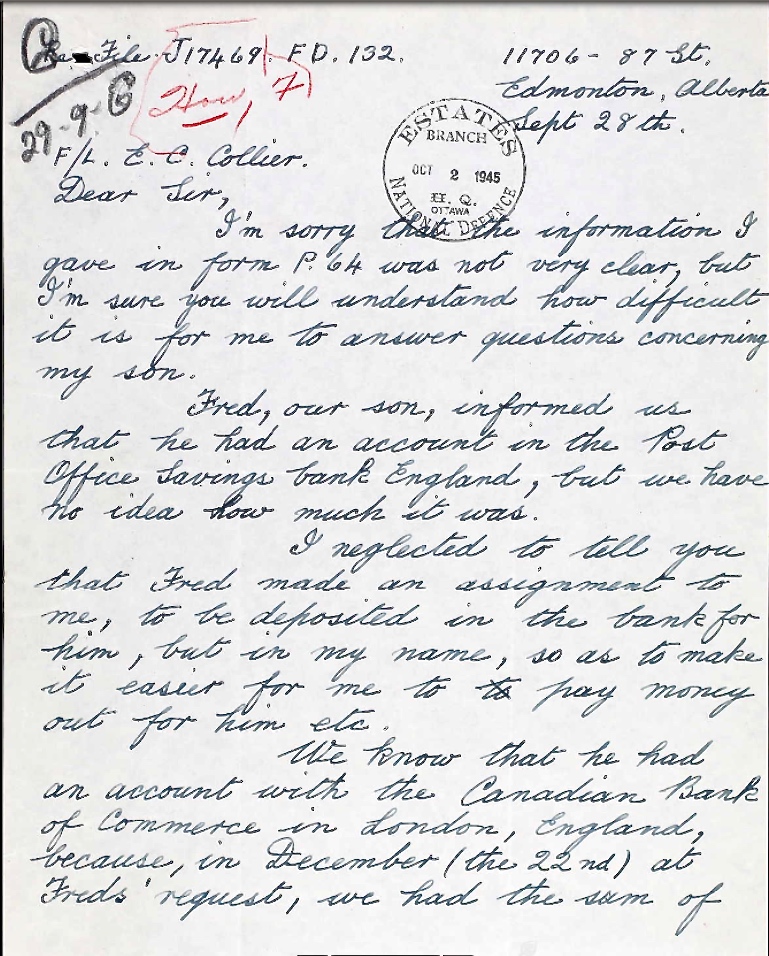 Re - File J17469 F D. 132.
11706 - 87 St.
Edmonton, Alberta
Sept 28th.
29-9-6
F/L. E. C. Collier.
ESTATES
BRANCH
OCT 2 1945
H. Q.
OTTAWA
NATIONAL DEFENCE
Dear Sir,
I'm sorry that the information I
gave in form P. 64 was not very clear, but
I'm sure you will understand how difficult
it is for me to answer questions concerning
my son.
Fred, our son, informed us
that he had an account in the Post
Office Savings bank England, but we have
no idea how much it was.
I neglected to tell you
that Fred made an assignment to
me, to be deposited in the bank for
him, but in my name, so as to make
it easier for me to to pay money
out for him etc.
We know that he had
an account with the Canadian Bank
of Commerce in London, England,
because, in December (the 22nd) at
Freds' request, we had the sum of